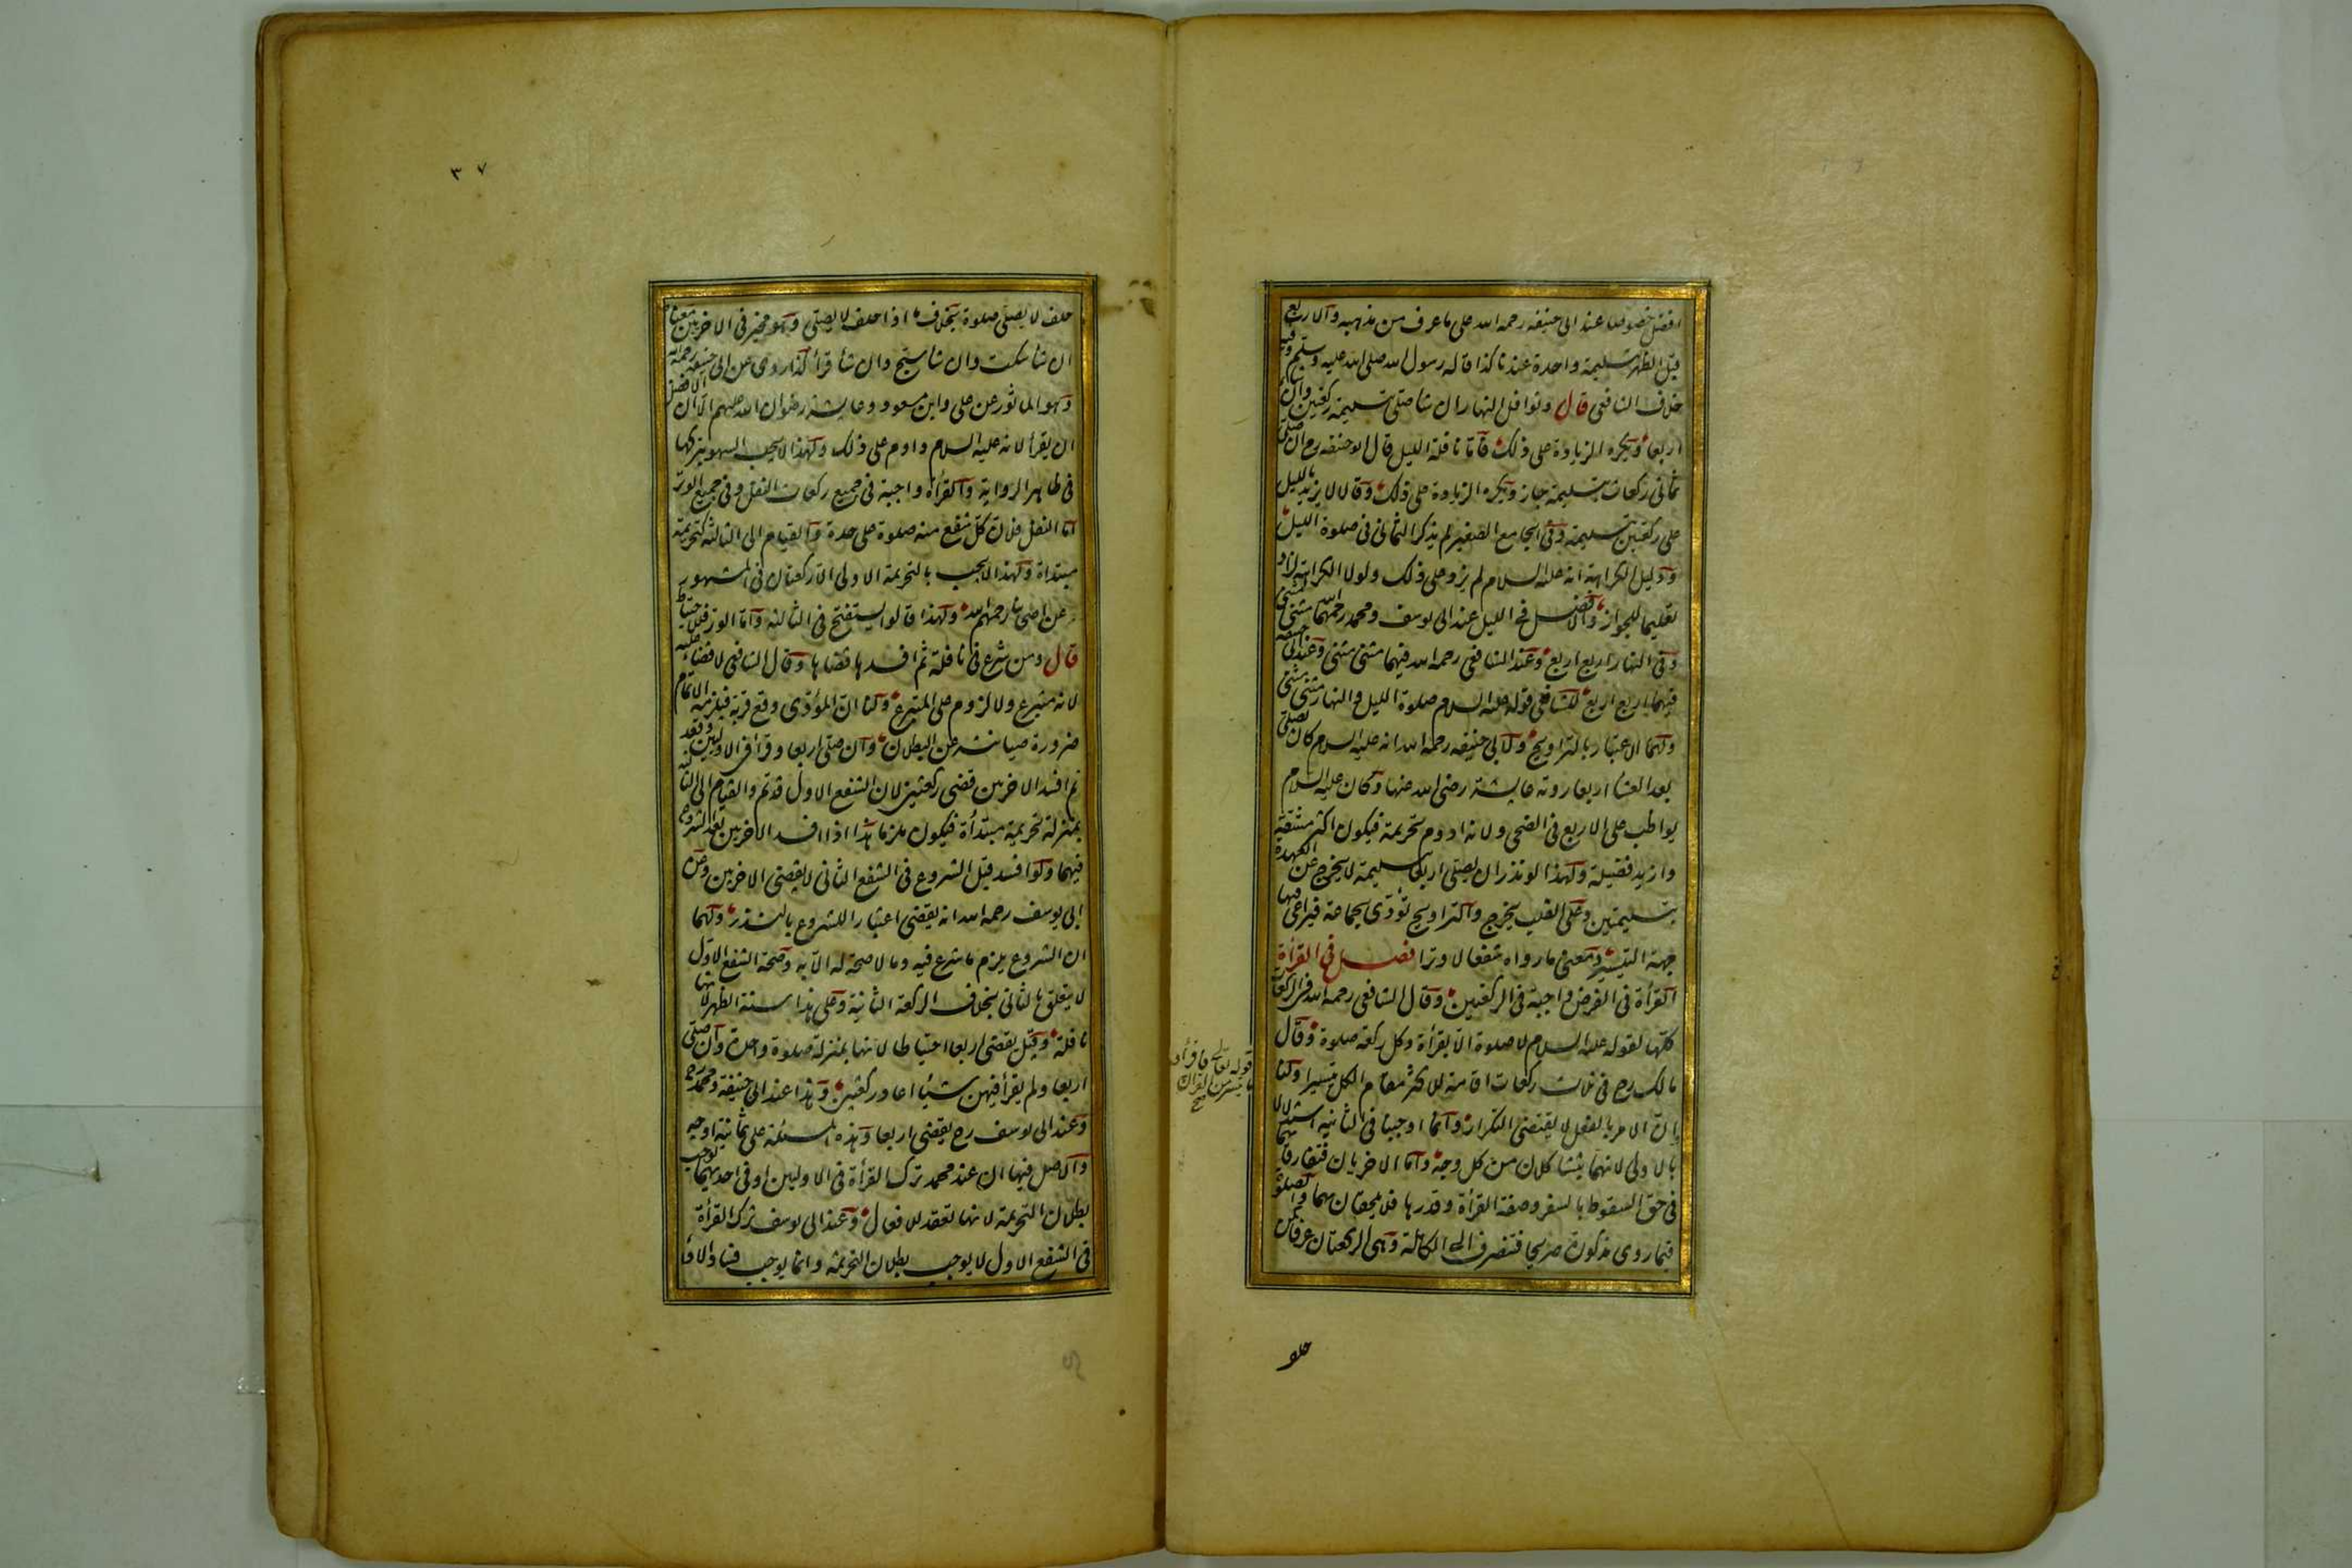 افضل خصوصا عند ابى حنيفه رحمه الله على ما عرف من مذهبه والاربع
قبل الظهر بتسليمة واحدة عندنا كذا قاله رسول الله صلى الله عليه وسلم وفيه
خلاف الشافعى قال ونوافل النهار ان شا صلى بتسليمة ركعتين وان شا
اربعا ويكره الزيادة على ذلك فاما نافلة الليل قال ابو حنيفه رح ان صلى
ثمانى ركعات بتسليمة جاز ويكره الزيادة على ذلك وقالا لا يزيد بالليل
على ركعتين بتسليمة وفى الجامع الصغير لم يذكر الثمانى فى صلوة الليل
ودليل الكراهة انه عليه السلام لم يزد على ذلك ولولا الكراهة لزاد
تعليما للجواز والافضل فى الليل عند ابى يوسف ومحمد رحمهما الله مثنى مثنى
وفى النهار اربع اربع وعند الشافعى رحمه الله فيهما مثنى مثنى وعند ابى حنيفه
فيهما اربع اربع للشافعى قوله عليه السلام صلوة الليل والنهار مثنى مثنى
ولهما الاعتبار بالتراويح ولابى حنيفه رحمه الله انه عليه السلام كان يصلى
بعد العشا اربعا روته عايشة رضى الله عنها وكان عليه السلام
يواظب على الاربع فى الضحى ولانه ادوم تحريمة فيكون اكثر مشقة
وازيد فضيلة ولهذا لو نذر ان يصلى اربعا بتسليمة لا يخرج عن العهدة
بتسليمتين وعلى القلب يخرج والتراويح تؤدى بجماعة فيراعى فيها
جهة التيسير ومعنى ما رواه شفعا لا وترا فصل فى القرأة
القرأة فى الفرض واجبة فى الركعتين وقال الشافعى رحمه الله فى الركعات
كلها لقوله عليه السلام لا صلوة الا بقرأة وكل ركعة صلوة وقال
مالك رح فى ثلث ركعات اقامة للاكثر مقام الكل تيسيرا ولنا
قوله تعالى فاقرأوا
ما تيسر من القران
صح
ان الامر بالفعل لا يقتضى التكرار وانما اوجبنا فى الثانية استدلالا
بالاولى لانهما يتشاكلان من كل وجه واما الاخريان فتفارقانهما
فى حق السقوط بالسفر وصفة القرأة وقدرها فلا يلحقان بهما والصلوة
فيما روى مذكورة صريحا فتنصرف الى الكاملة وهى الركعتان عرفا كمن
حلف
٣٧
حلف لا يصلى صلوة بخلاف ما اذا حلف لا يصلى وهو مخير فى الاخريين معناه
ان شا سكت وان شا سبح وان شا قرأ كذا روى عن ابى حنيفه رحمه الله
وهو المأثور عن على وابن مسعود وعايشة رضوان الله عليهم الا ان الافضل
ان يقرأ لانه عليه السلام داوم على ذلك ولهذا لا يجب السهو بتركها
فى ظاهر الرواية والقرأة واجبة فى جميع ركعات النفل وفى جميع الوتر
اما النفل فلان كل شفع منه صلوة على حدة والقيام الى الثالثه كتحريمة
مبتدأة ولهذا لا يجب بالتحريمة الاولى الا ركعتان فى المشهور
عن اصحابنا رحمهم الله ولهذا قالوا يستفتح فى الثالثه واما الوتر فللاحتياط
قال ومن شرع فى نافلة ثم افسدها قضاها وقال الشافعى لا قضاء عليه
لانه متبرع ولا لزوم على المتبرع ولنا ان المؤدى وقع قربة فيلزمه الاتمام
ضرورة صيانته عن البطلان وان صلى اربعا وقرأ فى الاوليين وقعد
ثم افسد الاخريين قضى ركعتين لان الشفع الاول قد تم والقيام الى الثالثه
بمنزلة تحريمة مبتدأة فيكون ملزما هذا اذا افسد الاخريين بعد الشروع
فيهما ولو افسد قبل الشروع فى الشفع الثانى لا يقضى الاخريين وعن
ابى يوسف رحمه الله انه يقضى اعتبارا للشروع بالنذر ولهما
ان الشروع يلزم ما شرع فيه وما لا صحة له الا به وصحة الشفع الاول
لا يتعلق بالثانى بخلاف الركعة الثانية وعلى هذا سنة الظهر لانها
نافلة وقيل يقضى اربعا احتياطا لانها بمنزلة صلوة واحدة وان صلى
اربعا ولم يقرأ فيهن شيأ اعاد ركعتين وهذا عند ابى حنيفة ومحمد رح
وعند ابى يوسف رح يقضى اربعا وهذه المسئلة على ثمانية اوجه
والاصل فيها ان عند محمد ترك القرأة فى الاوليين او فى احديهما يوجب
بطلان التحريمة لانها تعقد للافعال وعند ابى يوسف ترك القرأة
فى الشفع الاول لا يوجب بطلان التحريمة وانما يوجب فساد الادا